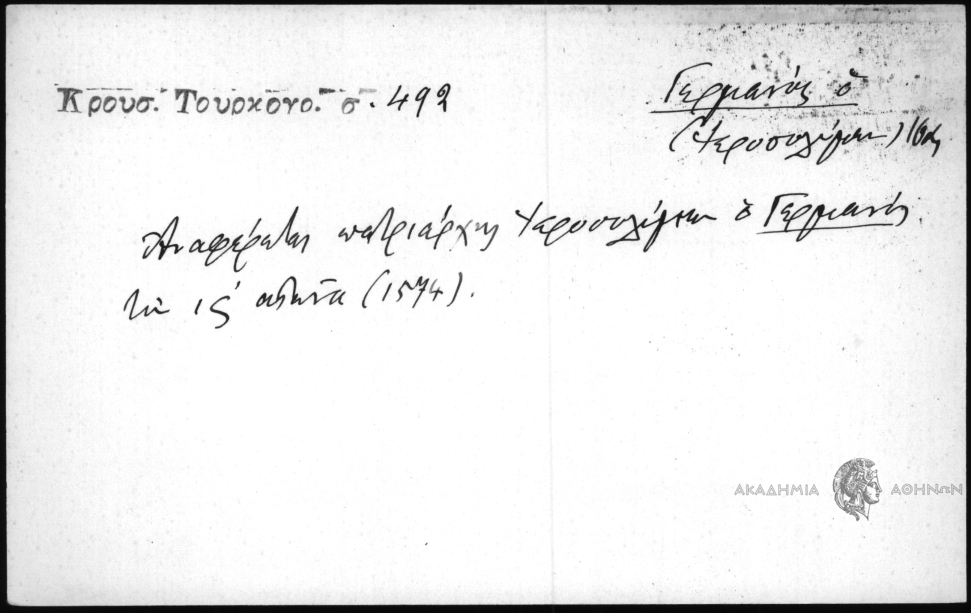 Κρουσ. Τουρκογρ. σ. 492
Γερμανός ὁ
(Ἱεροσολύμων)
Ἀναφέρεται πατριάρχης Ἱεροσολύμων ὁ Γερμανός.
τὸν ις´ αἰῶνα (1574).
ΑΚΑΔΗΜΙΑ ΑΘΗΝΩΝ